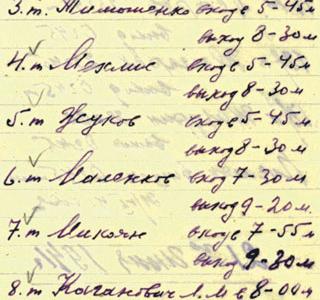 3. т. Тимошенко вход в 5-45 м
выход 8-30 м
4. т Мехлис вход в 5-45 м
выход 8-30 м
5. т Жуков вход в 5-45 м
выход 8-30 м
6. т Маленков вход 7-30 м
выход 9-20 м.
7. т Микоян вход в 7-55 м
выход 9-30 м
8. т Каганович Л.М в 8-00 м